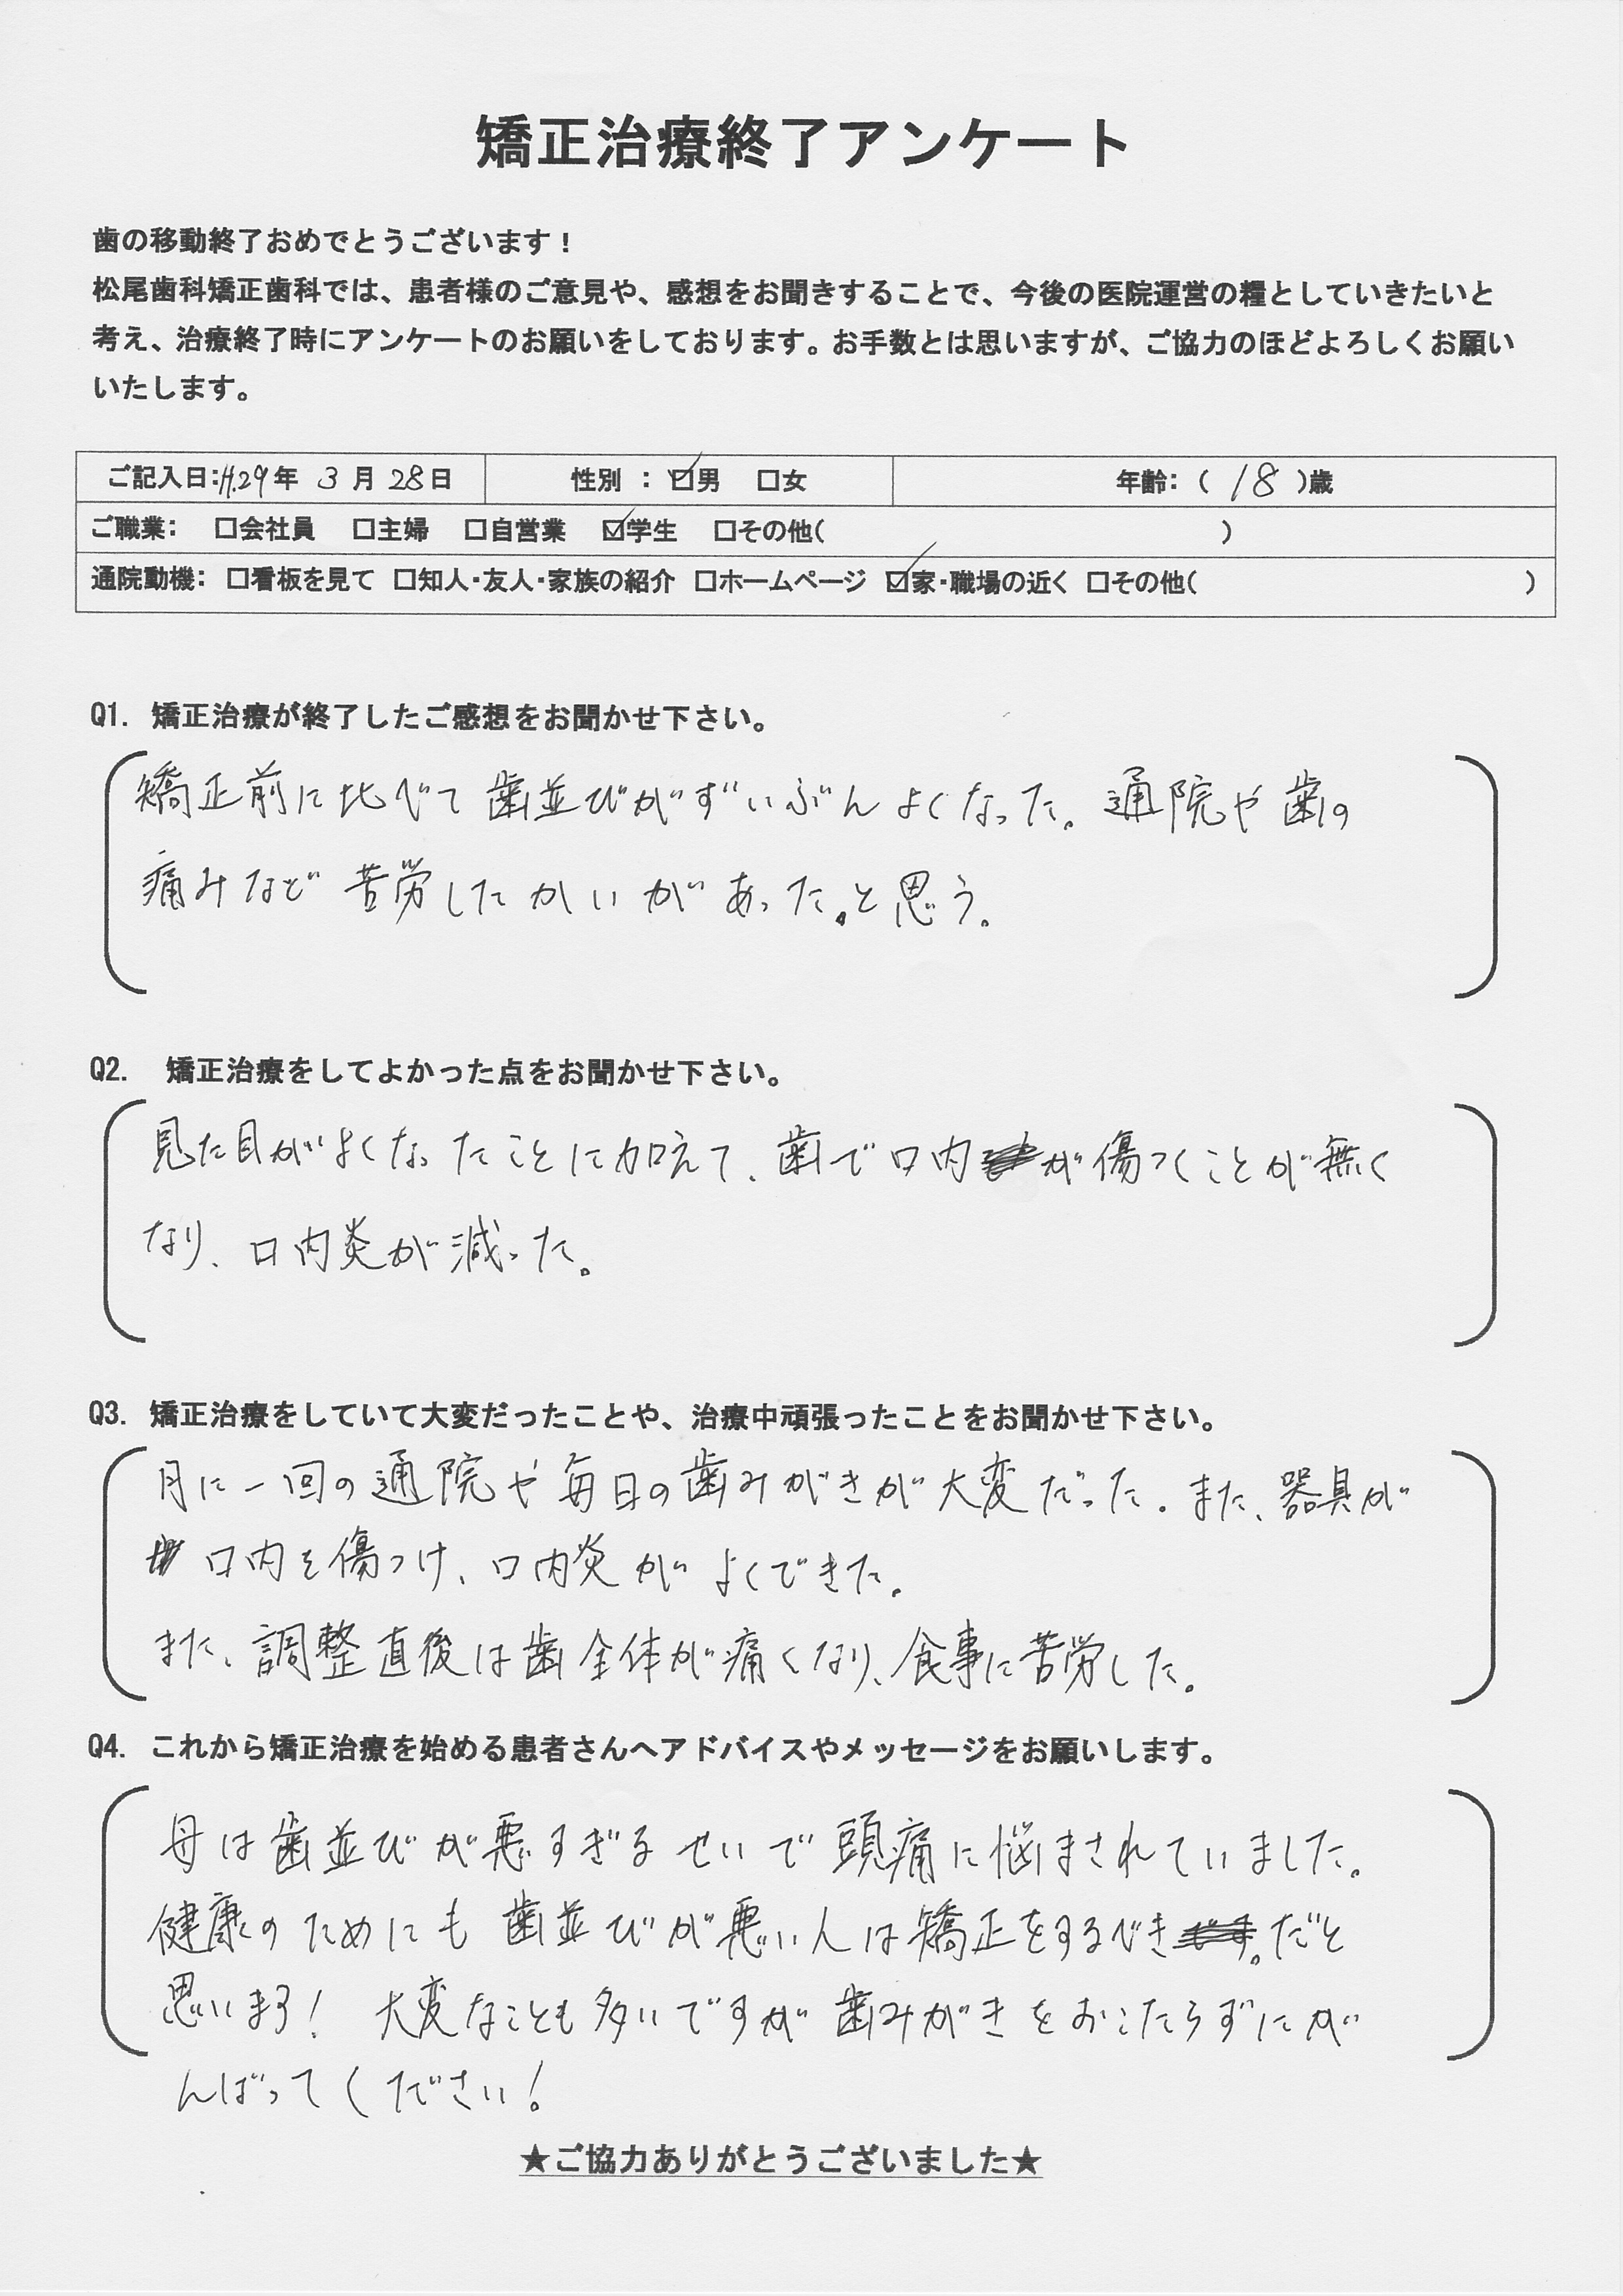 矯正治療終了アンケート
歯の移動終了おめでとうございます！
松尾歯科矯正歯科では、患者様のご意見や、感想をお聞きすることで、今後の医院運営の糧としていきたいと
考え、治療終了時にアンケートのお願いをしております。お手数とは思いますが、ご協力のほどよろしくお願い
いたします。
ご記入日：H.29年 3月 28日 性別 ：☑男 □女 年齢：（ 18 ）歳
ご職業： □会社員 □主婦 □自営業 ☑学生 □その他（ ）
通院動機： □看板を見て □知人・友人・家族の紹介 □ホームページ ☑家・職場の近く □その他（ ）
Q1. 矯正治療が終了したご感想をお聞かせ下さい。
矯正前に比べて歯並びがずいぶんよくなった。通院や歯の
痛みなど苦労したかいがあった。と思う。
Q2. 矯正治療をしてよかった点をお聞かせ下さい。
見た目がよくなったことに加えて、歯で口内が傷つくことが無く
なり、口内炎が減った。
Q3. 矯正治療をしていて大変だったことや、治療中頑張ったことをお聞かせ下さい。
月に一回の通院や毎日の歯みがきが大変だった。また、器具が
口内を傷つけ、口内炎がよくできた。
また、調整直後は歯全体が痛くなり、食事に苦労した。
Q4. これから矯正治療を始める患者さんへアドバイスやメッセージをお願いします。
母は歯並びが悪すぎるせいで頭痛に悩まされていました。
健康のためにも歯並びが悪い人は矯正をするべきだと
思います！ 大変なことも多いですが歯みがきをおこたらずにが
んばってください！
★ご協力ありがとうございました★